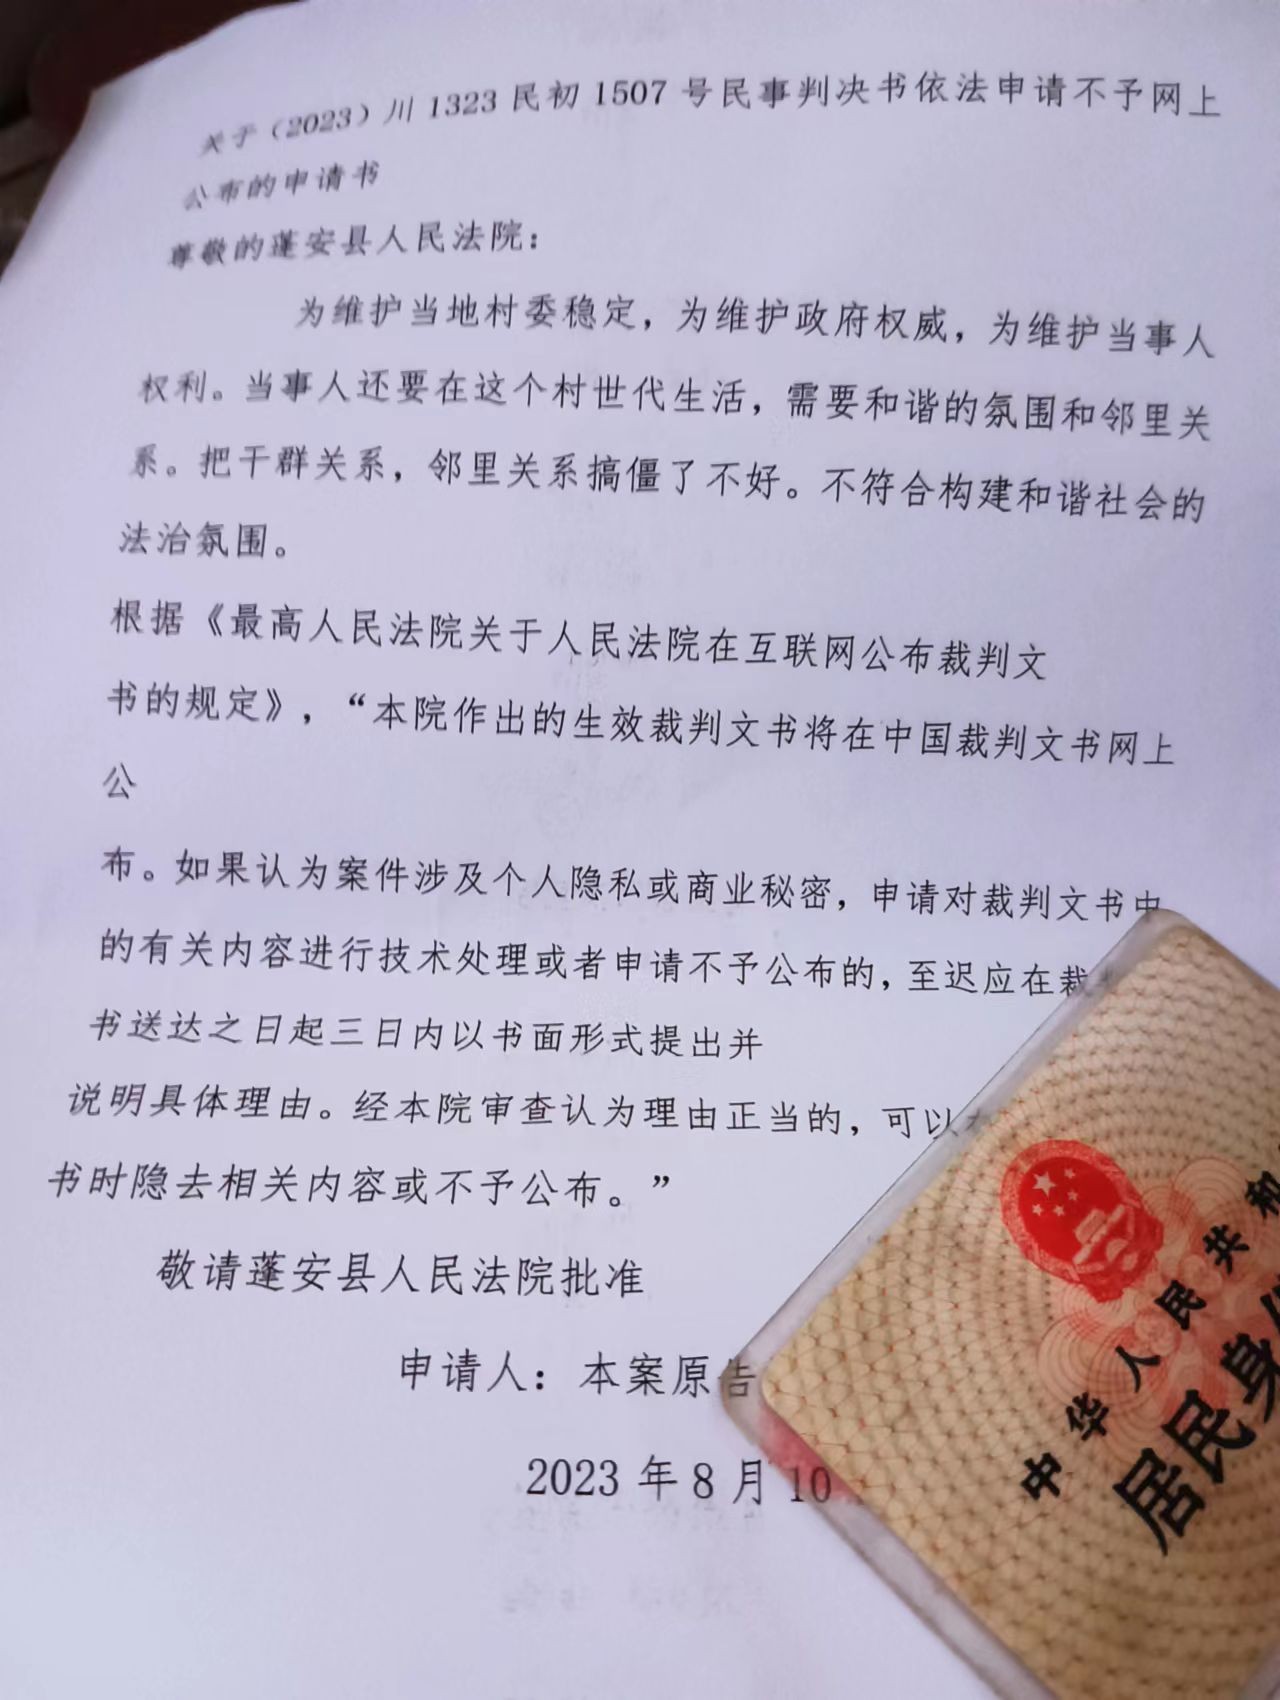 关于（2023）川 1323 民初 1507 号民事判决书依法申请不予网上
公布的申请书
尊敬的蓬安县人民法院：
为维护当地村委稳定，为维护政府权威，为维护当事人
权利。当事人还要在这个村世代生活，需要和谐的氛围和邻里关
系。把干群关系，邻里关系搞僵了不好。不符合构建和谐社会的
法治氛围。
根据《最高人民法院关于人民法院在互联网公布裁判文
书的规定》，“本院作出的生效裁判文书将在中国裁判文书网上
公
布。如果认为案件涉及个人隐私或商业秘密，申请对裁判文书中
的有关内容进行技术处理或者申请不予公布的，至迟应在裁
书送达之日起三日内以书面形式提出并
说明具体理由。经本院审查认为理由正当的，可以
书时隐去相关内容或不予公布。”
敬请蓬安县人民法院批准
申请人：本案原告
2023 年 8 月 10
中华人民共和
居民身